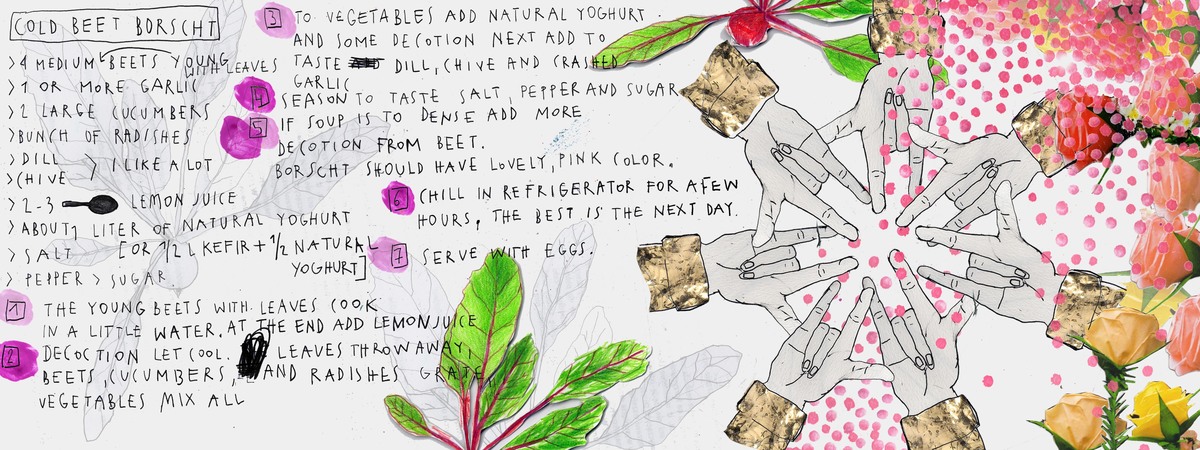 COLD BEET BORSCHT
> 4 MEDIUM BEETS YOUNG
WITH LEAVES
> 1 OR MORE GARLIC
> 2 LARGE CUCUMBERS
> BUNCH OF RADISHES
> DILL
> CHIVE } I LIKE A LOT
> 2-3 LEMON JUICE
> ABOUT 1 LITER OF NATURAL YOGHURT
> SALT [OR 1/2 L KEFIR + 1/2 NATURAL
YOGHURT]
> PEPPER > SUGAR
1 THE YOUNG BEETS WITH LEAVES COOK
IN A LITTLE WATER. AT THE END ADD LEMON JUICE
2 DECOCTION LET COOL. LEAVES THROW AWAY,
BEETS, CUCUMBERS, AND RADISHES GRATE,
VEGETABLES MIX ALL
3 TO VEGETABLES ADD NATURAL YOGHURT
AND SOME DECOTION NEXT ADD TO
TASTE DILL, CHIVE AND CRASHED
GARLIC
4 SEASON TO TASTE SALT, PEPPER AND SUGAR
5 IF SOUP IS TO DENSE ADD MORE
DECOTION FROM BEET.
BORSCHT SHOULD HAVE LOVELY, PINK COLOR.
6 CHILL IN REFRIGERATOR FOR A FEW
HOURS, THE BEST IS THE NEXT DAY.
7 SERVE WITH EGGS.